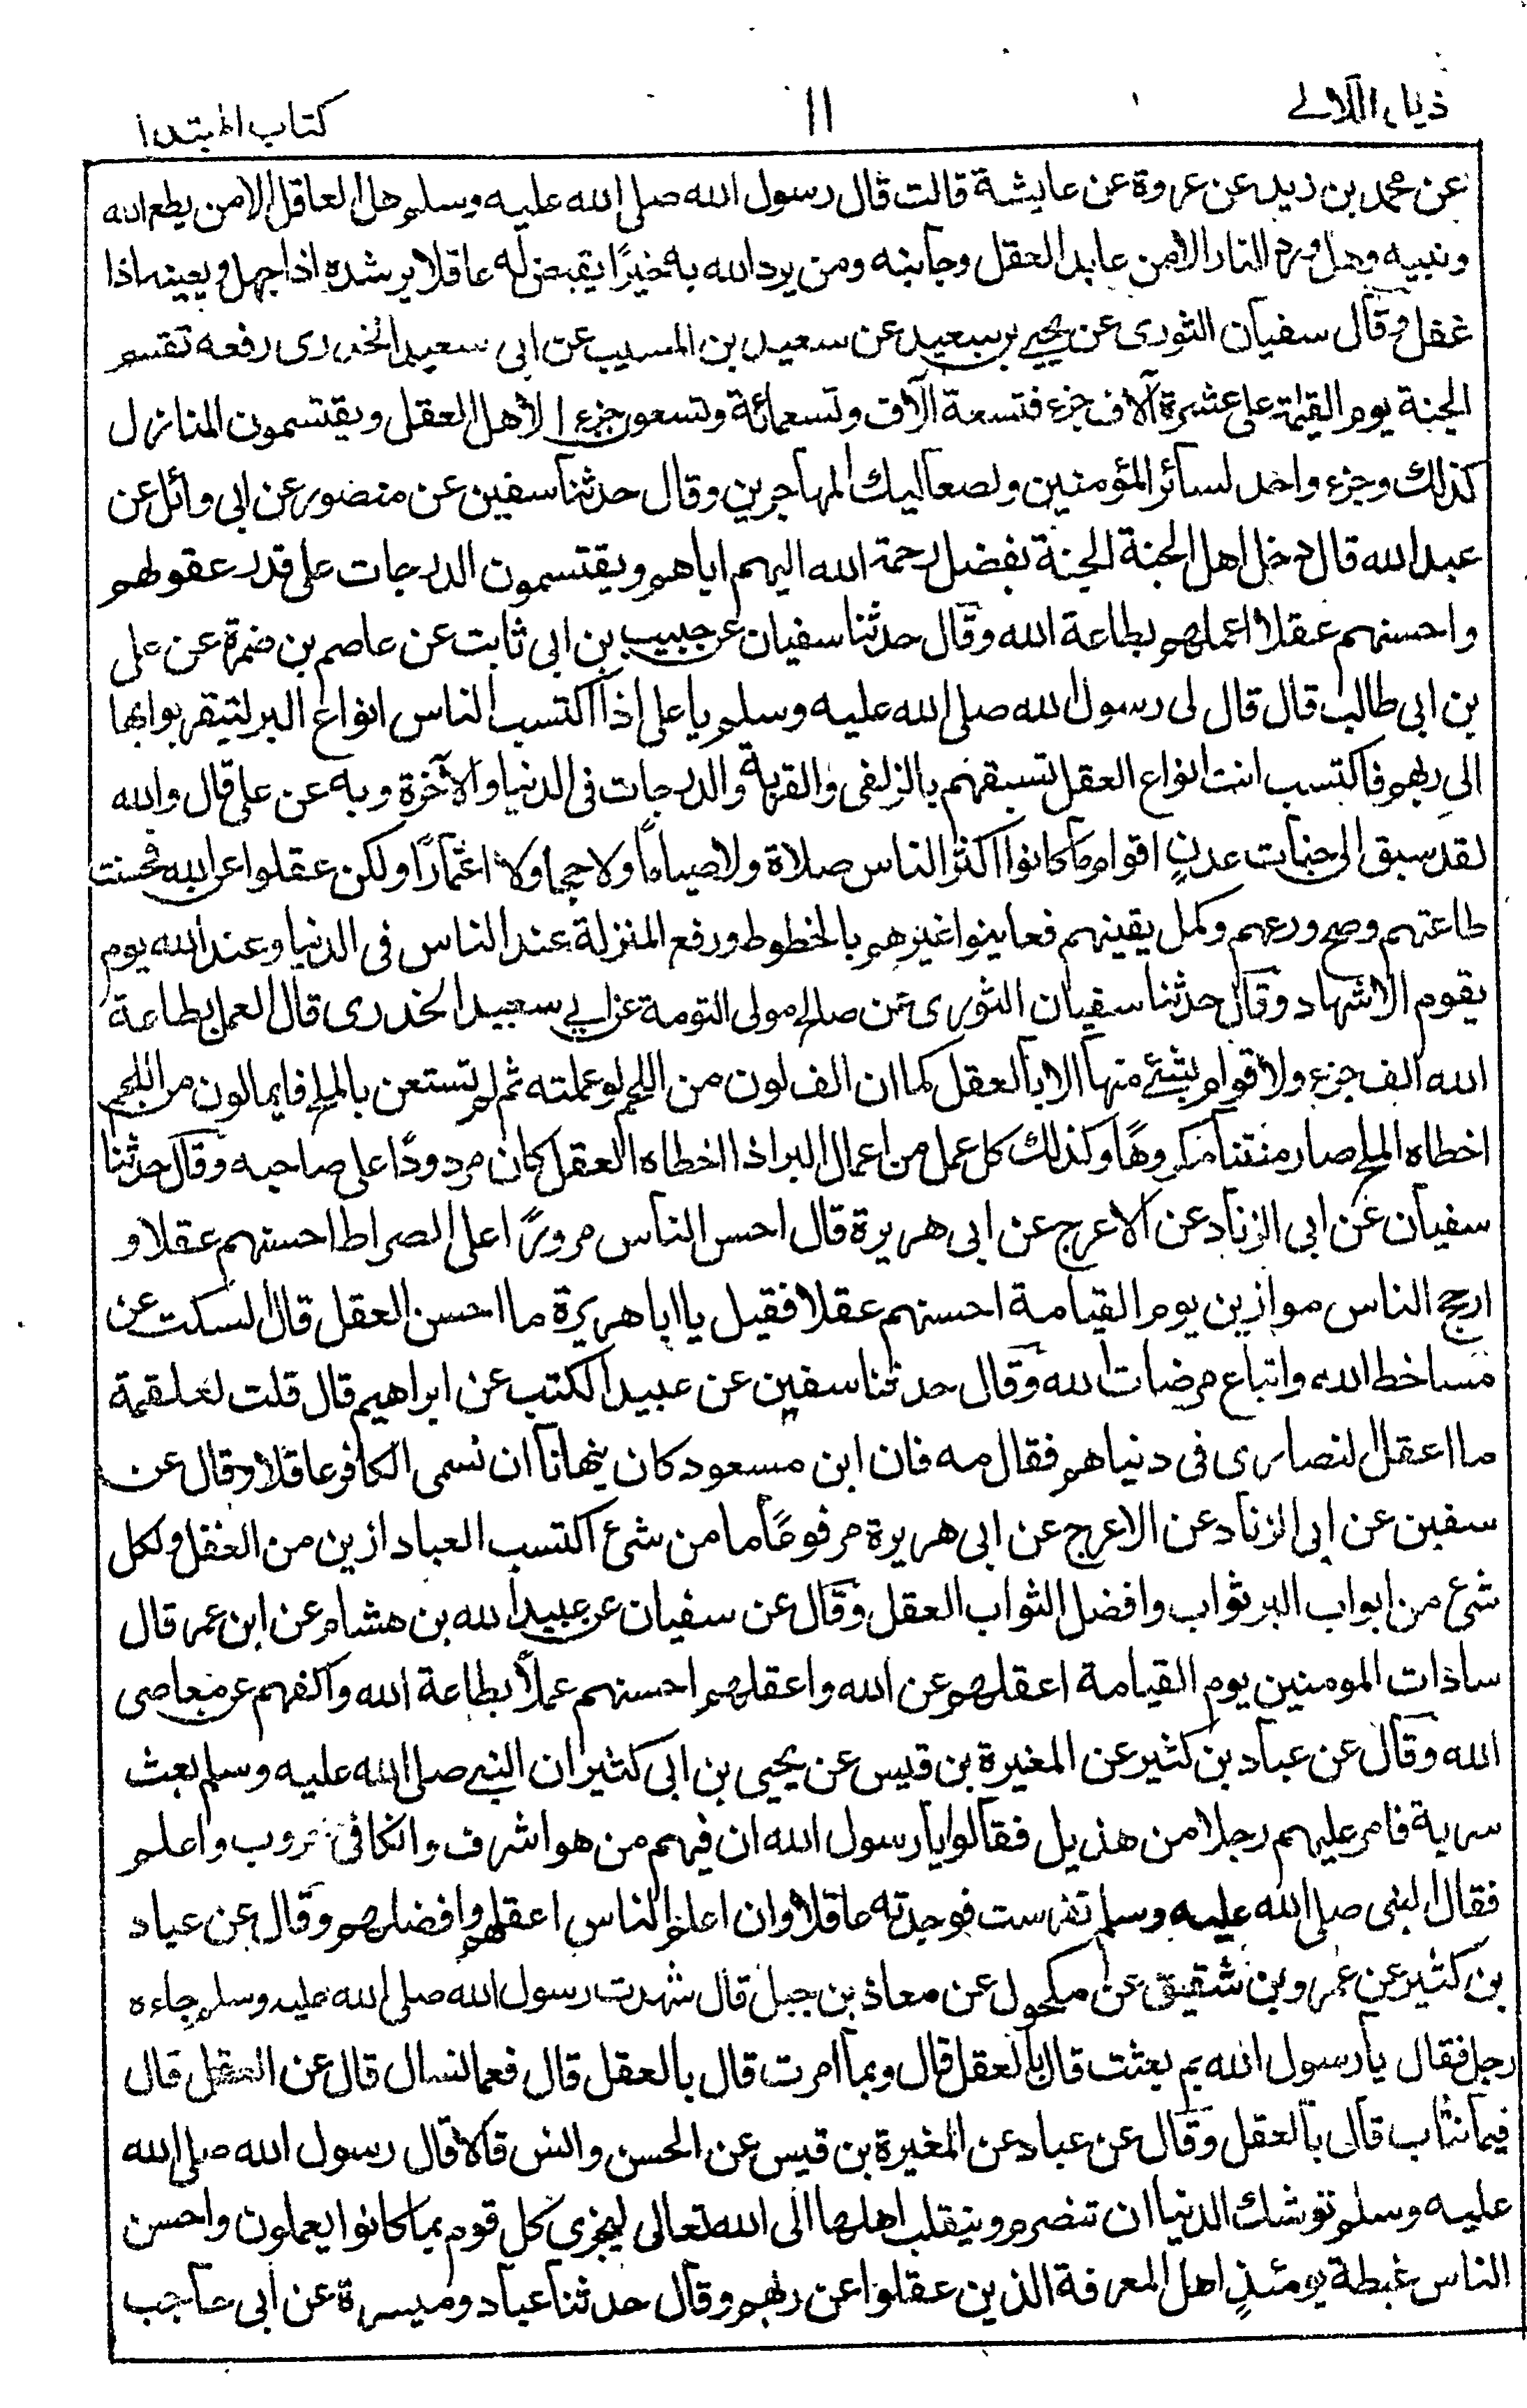 ذيل اللآلے
١١
كتاب المبتدا
عن محمد بن زيد عن عروة عن عايشة قالت قال رسول الله صلى الله عليه وسلم هل العاقل الا من يطع الله
ونبيه وهل ورد النار الا من عابد العقل وجانبه ومن يرد الله به خيرًا يقبض له عاقلا يرشده اذا جهل ويعينه اذا
غفل وقال سفيان الثورى عن يحيے بن سعيد عن سعيد بن المسيب عن ابى سعيد الخدرى رفعه تقسم
الجنة يوم القيمة على عشرة آلاف جزء فتسعة آلاف وتسعمائة وتسعون جزءا لأهل العقل ويقتسمون المنازل
كذلك وجزء واحد لسائر المؤمنين ولصعاليك المهاجرين وقال حدثنا سفين عن منصور عن ابى وائل عن
عبد الله قال دخل اهل الجنة الجنة بفضل رحمة الله اليهم اياهم ويقتسمون الدرجات على قدر عقولهم
واحسنهم عقلا اعملهم بطاعة الله وقال حدثنا سفيان عن حبيب بن ابى ثابت عن عاصم بن ضمرة عن على
بن ابى طالب قال قال لى رسول الله صلى الله عليه وسلم يا على اذا اكتسب الناس انواع البر ليتقربوا بها
الى ربهم فاكتسب انت انواع العقل تسبقهم بالزلفى والقربة والدرجات فى الدنيا والآخرة وبه عن على قال والله
لقد سبق الى جنات عدنٍ اقوام ما كانوا اكثر الناس صلاة ولا صياما ولا حجا ولا اعتمارًا ولكن عقلوا عن الله فحسنت
طاعتهم وصح ورعهم وكمل يقينهم فعاينوا غيرهم بالخطوط ورفع المنزلة عند الناس فى الدنيا وعند الله يوم
يقوم الاشهاد وقال حدثنا سفيان الثورى عن صالح مولى التومة عن ابے سعيد الخدرى قال العمل بطاعة
الله الف جزء ولا قوام بشئ منها الا بالعقل كما ان الف لون من اللحم لو عملته ثم لم تستعن بالملح فايما لون من اللحم
اخطاه الملح صار منتنا مكروهًا وكذلك كل عمل من اعمال البر اذا اخطاه العقل كان مردودًا على صاحبه وقال حدثنا
سفيان عن ابى الزناد عن الاعرج عن ابى هريرة قال احسن الناس مرورًا على الصراط احسنهم عقلا و
ارجح الناس موازين يوم القيامة احسنهم عقلا فقيل يا ابا هريرة ما احسن العقل قال لسكت عن
مساخط الله واتباع مرضات الله وقال حدثنا سفين عن عبيد الكتب عن ابراهيم قال قلت لعلقمة
ما اعقل النصارى فى دنياهم فقال مه فان ابن مسعود كان ينهانا ان نسمى الكافر عاقلا وقال عن
سفين عن ابى الزناد عن الاعرج عن ابى هريرة مرفوعًا ما من شئ اكتسب العباد ازين من العقل ولكل
شئ من ابواب البر ثواب وافضل الثواب العقل وقال عن سفيان عن عبيد الله بن هشام عن ابن عمر قال
سادات المومنين يوم القيامة اعقلهم عن الله واعقلهم احسنهم عملاً بطاعة الله واكفهم عن معاصى
الله وقال عن عباد بن كثير عن المغيرة بن قيس عن يحيى بن ابى كثير ان النبے صلى الله عليه وسلم بعث
سرية فامر عليهم رجلا من هذيل فقالوا يا رسول الله ان فيهم من هو اشرف واعلم
فقال النبى صلى الله عليه وسلم تفرست فوجدته عاقلا وان اعلم الناس اعقلهم وافضلهم وقال عن عباد
بن كثير عن عمرو بن شقيق عن مكحول عن معاذ بن جبل قال شهدت رسول الله صلى الله عليه وسلم جاءه
رجل فقال يا رسول الله بم بعثت قال بالعقل قال وبما امرت قال بالعقل قال فعما نسال قال عن العقل قال
فيما نثاب قال بالعقل وقال عن عباد عن المغيرة بن قيس عن الحسن وانس قالا قال رسول الله صلى الله
عليه وسلم توشك الدنيا ان تنصرم وينقلب اهلها الى الله تعالى ليجزى كل قوم بما كانوا يعملون واحسن
الناس غبطة يومئذٍ اهل المعرفة الذين عقلوا عن ربهم وقال حدثنا عباد وميسرة عن ابى حاجب